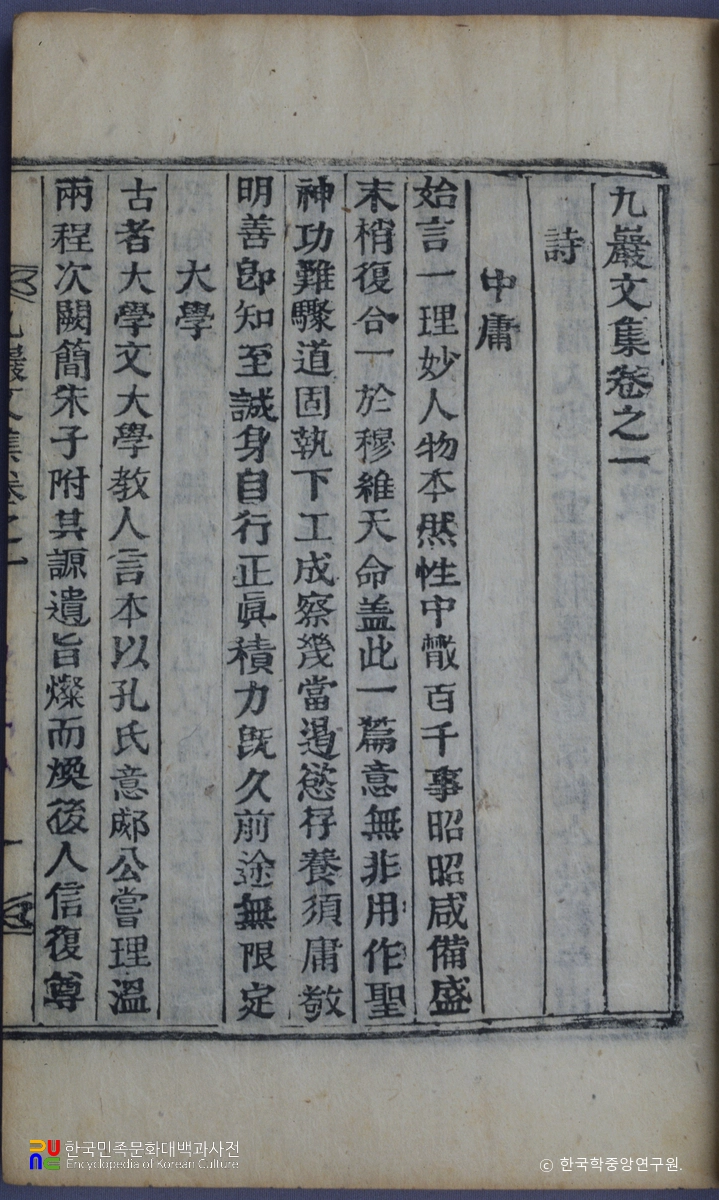 九巖文集卷之一
詩
中庸
始言一理妙人物本然性中散百千事昭昭咸備盛
末梢復合一於穆維天命盖此一篇意無非用作聖
神功難驟道固執下工成察幾當遏慾存養須庸敬
明善卽知至誠身自行正眞積力旣久前途無限定
大學
古者大學文大學敎人言本以孔氏意郕公嘗理溫
兩程次闕簡朱子附其源遺旨燦而煥後人信復尊
九巖文集卷之一
한국민족문화대백과사전
Encyclopedia of Korean Culture
ⓒ 한국학중앙연구원.